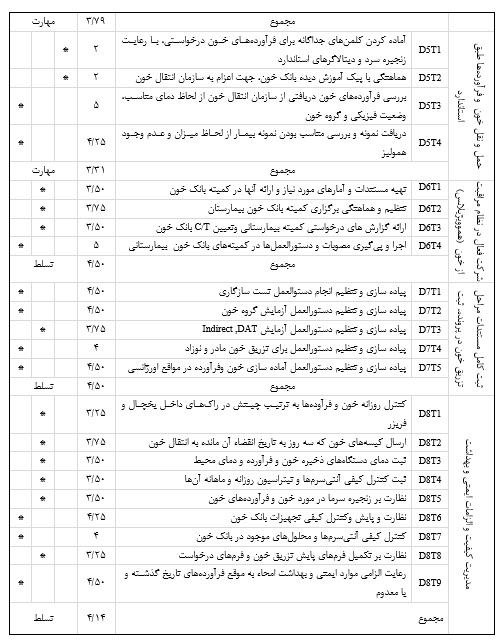 مجموع ۳/۷۹ مهارت
حمل و نقل خون و فرآورده‌ها طبق استاندارد
D5T1 آماده کردن کلمن‌های جداگانه برای فرآورده‌های خون درخواستی، با رعایت زنجیره سرد و دیتالاگرهای استاندارد ۲ *
D5T2 هماهنگی با پیک آموزش دیده بانک خون، جهت اعزام به سازمان انتقال خون ۲ *
D5T3 بررسی فرآورده‌های خون دریافتی از سازمان انتقال خون از لحاظ دمای متناسب، وضعیت فیزیکی و گروه خون ۵ *
D5T4 دریافت نمونه و بررسی متناسب بودن نمونه بیمار از لحاظ میزان و عدم وجود همولیز ۴/۲۵ *
مجموع ۳/۳۱ مهارت
شرکت فعال در نظام مراقبت از خون (هموویژلانس)
D6T1 تهیه مستندات و آمارهای مورد نیاز و ارائه آنها در کمیته بانک خون ۳/۵۰ *
D6T2 تنظیم و هماهنگی برگزاری کمیته بانک خون بیمارستان ۳/۷۵ *
D6T3 ارائه گزارش های درخواستی کمیته بیمارستانی وتعیین C/T بانک خون ۳/۵۰ *
D6T4 اجرا و پی‌گیری مصوبات و دستورالعمل‌ها در کمیته‌های بانک خون بیمارستانی ۵ *
مجموع ۴/۵۰ تسلط
ثبت کامل مستندات مراحل تزریق خون در پرونده، ثبت
D7T1 پیاده سازی و تنظیم انجام دستوالعمل تست سازگاری ۴/۵۰ *
D7T2 پیاده سازی و تنظیم دستورالعمل آزمایش گروه خون ۴/۵۰ *
D7T3 پیاده سازی و تنظیم دستورالعمل آزمایش Indirect ,DAT ۳/۷۵ *
D7T4 پیاده سازی و تنظیم دستورالعمل برای تزریق خون مادر و نوزاد ۴ *
D7T5 پیاده سازی و تنظیم دستورالعمل آماده سازی خون وفرآورده در مواقع اورژانسی ۴/۵۰ *
مجموع ۴/۵۰ تسلط
مدیریت کیفیت و الزامات ایمنی و بهداشت
D8T1 کنترل روزانه خون و فرآوده‌ها به ترتیب چینش در راک‌های داخل یخچال و فریزر ۳/۲۵ *
D8T2 ارسال کیسه‌های خون که سه روز به تاریخ انقضاء آن مانده به انتقال خون ۳/۷۵ *
D8T3 ثبت دمای دستگاه‌های ذخیره خون و فرآورده و دمای محیط ۳/۵۰ *
D8T4 ثبت کنترل کیفی آنتی‌سرم‌ها و تیتراسیون روزانه و ماهانه آن‌ها ۳/۵۰ *
D8T5 نظارت بر زنجیره سرما در مورد خون و فرآورده‌های خون ۳/۵۰ *
D8T6 نظارت و پایش وکنترل کیفی تجهیزات بانک خون ۴/۲۵ *
D8T7 کنترل کیفی آنتی‌سرم‌ها و محلول‌های موجود در بانک خون ۴ *
D8T8 نظارت بر تکمیل فرم‌های پایش تزریق خون و فرم‌های درخواست ۳/۲۵ *
D8T9 رعایت الزامی موارد ایمنی و بهداشت امحاء به موقع فرآورده‌های تاریخ گذشته و یا معدوم ۴/۵۰ *
مجموع ۴/۱۴ تسلط